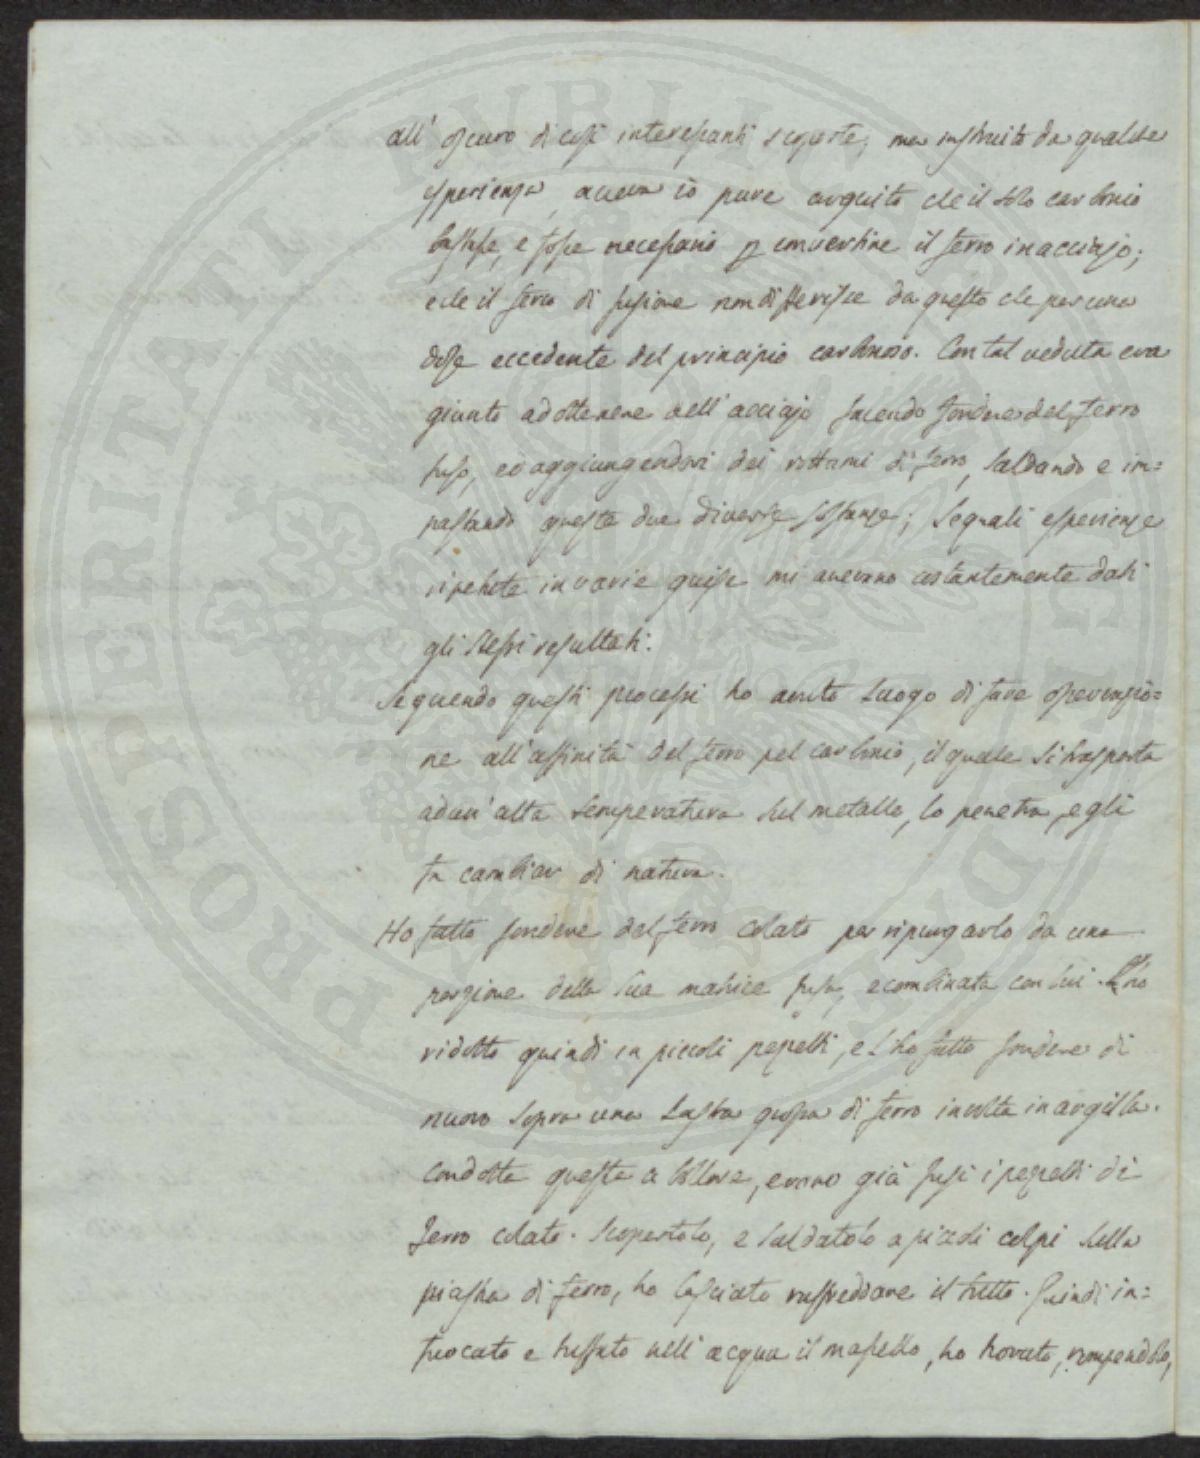 all' oscuro di così interessanti scoperte; ma instruito da qualche
esperienza, aveva io pure arguito che il solo carbonio
bastasse, e fosse necessario p convertire il ferro in acciajo;
e che il ferro di fusione non differisce da questo che per una
dose eccedente del principio carbonoso. Con tal veduta era
giunto ad ottenere dell' acciajo facendo fondere del ferro
fuso, ed aggiungendovi dei rottami di ferro, saldando e im=
pastando queste due diverse sostanze; le quali esperienze
ripetute in varie guise mi avevano costantemente dati
gli stessi resultati.
Seguendo questi processi ho avuto luogo di fare osservazio=
ne all' affinità del ferro pel carbonio, il quale si trasporta
ad un' alta temperatura sul metallo, lo penetra, e gli
fa cambiar di natura.
Ho fatto fondere del ferro colato per ripurgarlo da una
porzione della sua matrice fusa, e combinata con lui. L'ho
ridotto quindi in piccoli pezzetti, e l'ho fatto fondere di
nuovo sopra una lastra grossa di ferro involta in argilla.
Condotta questa a bollore, erano già fusi i pezzetti di
ferro colato. Scopertolo, e saldatolo a piccoli colpi sulla
piastra di ferro, ho lasciato raffreddare il tutto. Quindi in=
fuocato e tuffato nell' acqua il massello, ho trovato, rompendolo,
PROSPERITATI PUBLICAE